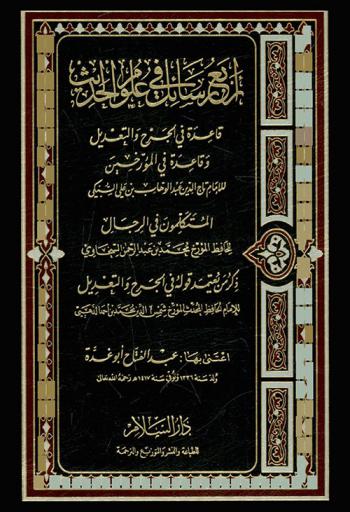 أربع رسائل في علوم الحديث
قاعدة في الجرح والتعديل
وقاعدة في المؤرخين
للإمام تاج الدين عبد الوهاب بن علي السبكي
المتكلمون في الرجال
للحافظ المؤرخ محمد بن عبد الرحمن السخاوي
ذكر من يعتمد قوله في الجرح والتعديل
للإمام الحافظ المحدث المؤرخ شمس الدين محمد بن أحمد الذهبي
اعتنى بها : عبد الفتاح أبو غدة
ولد سنة ١٣٣٦ وتوفي سنة ١٤١٧ هـ رحمه الله تعالى
دار السلام
للطباعة والنشر والتوزيع والترجمة